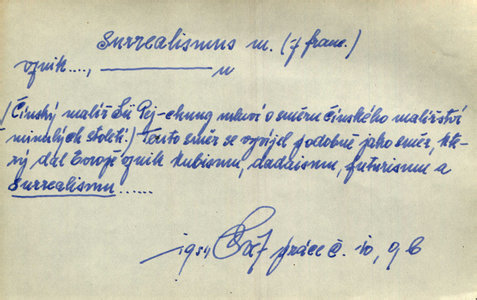 Surrealismus m. (z franc.)
vznik...., ———— u
(Čínský malíř Sü Pej-chung mluví o směru čínského malířství
minulých století:) Tento směr se vyvíjel podobně jako směr, kte-
rý dal Evropě vznik kubismu, dadaismu, futurismu a
surrealismu......
1951 práce č. 10, 9b